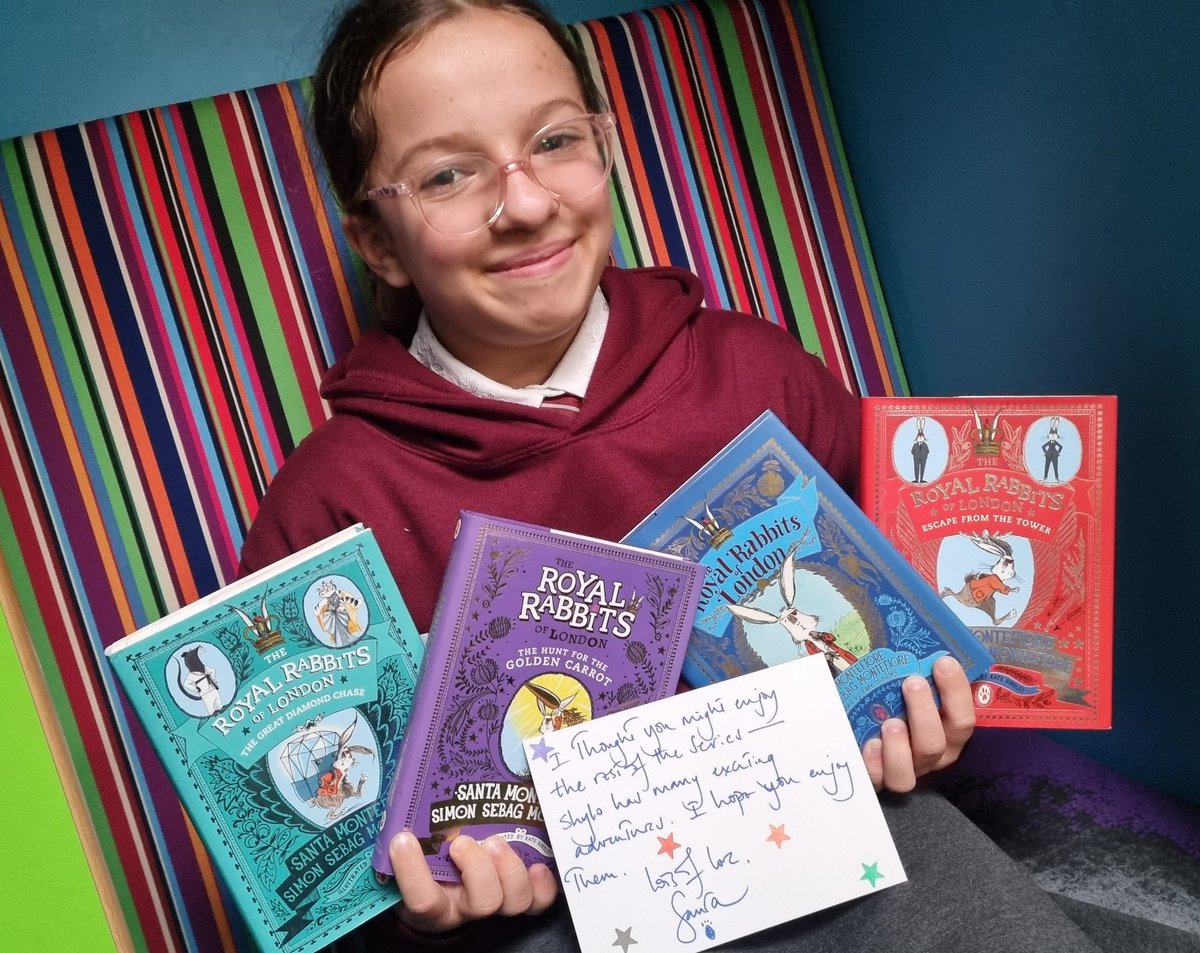 THE
ROYAL RABBITS
OF LONDON
THE GREAT DIAMOND CHASE
SANTA MONTE
SIMON SEBAG MO
ILLUSTRATED
THE
ROYAL
RABBITS
OF LONDON
THE HUNT FOR THE
GOLDEN CARROT
SANTA MON
SIMON SEBAG MO
BY KATE
THE
Royal Rabbits
of London
MONTEFIORE
THE
ROYAL RABBITS
OF LONDON
ESCAPE FROM THE TOWER
MONTEFIORE
MONTEFIORE
BY KATE HINDLEY
I thought you might enjoy
the rest of the series –
Shylo has many exciting
adventures. I hope you enjoy
them. Lots of love.
Santa